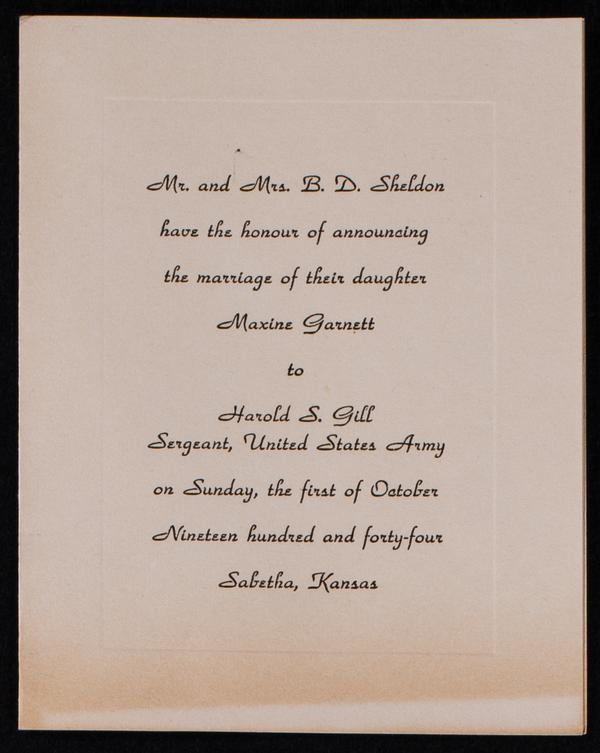 Mr. and Mrs. B. D. Sheldon
have the honour of announcing
the marriage of their daughter
Maxine Garnett
to
Harold S. Gill
Sergeant, United States Army
on Sunday, the first of October
Nineteen hundred and forty-four
Sabetha, Kansas